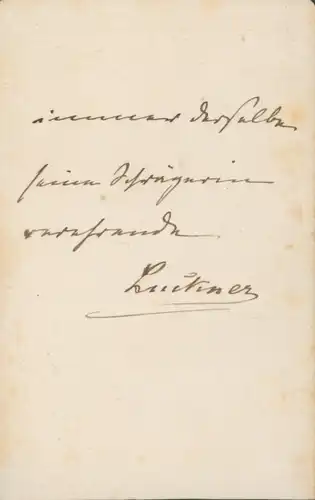 immer derselbe
seine Schwägerin
verehrende
Luckner